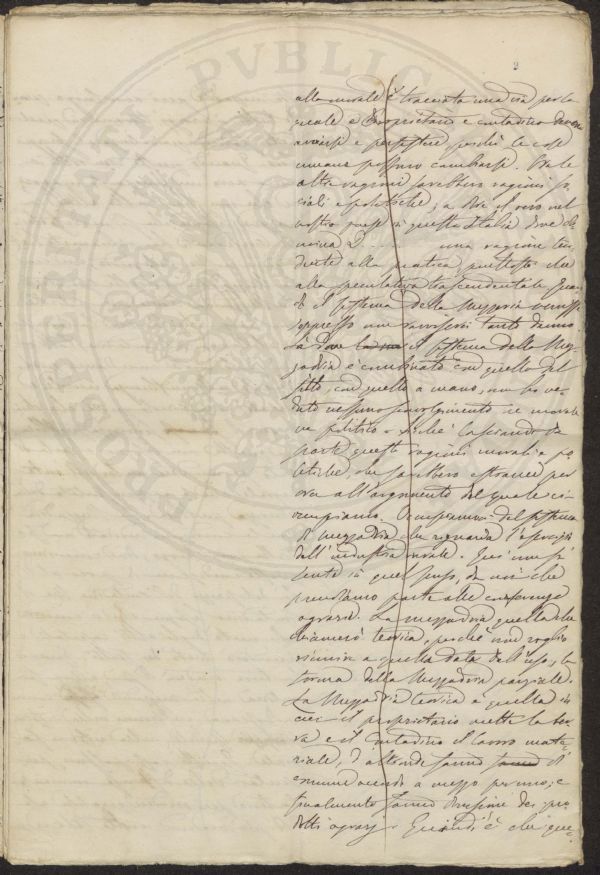 PROSPERITATI PVBLICAE
2
alla morale è tracciata una via per la
quale e proprietario e contadino devono
avviarsi e persistere, perchè le cose
umane possono cambiarsi. Tra le
altre ragioni sarebbero ragioni so
ciali e politiche, a dire il vero nel
nostro paese in questa Italia dove do
mina una ragione ten
dente alla pratica piuttosto che
alla speculativa trascendentale quan
d' il sistema della Mezzeria venisse
soppresso non tanto danno
là dove il sistema della Mez
zadria è combinato con quello del
fitto, con quello a mano, non ho ve
duto nessuno sconvolgimento nè morale
nè politico. Sicchè lasciando da
parte queste ragioni morali e po
litiche, che sarebbero estranee per
ora all'argomento del quale ci oc
cupiamo. Occupiamoci del sistema
di mezzadria che riguarda l'esercizio
dell'industria rurale. Qui non si
sente in quel senso, da noi che
prendiamo parte alle conferenze
agrarie. La mezzadria quella che
chiamerò teorica, perchè non voglio
venire a quella data dall'uso, la
forma della Mezzadria parziale.
La Mezzadria teorica è quella in
cui il proprietario mette la ter
ra e il Contadino il lavoro mate
riale, d'altronde fanno di
comune a mezzo per uno, e
finalmente fanno divisione dei pro
dotti agrarj. Quindi è che que=